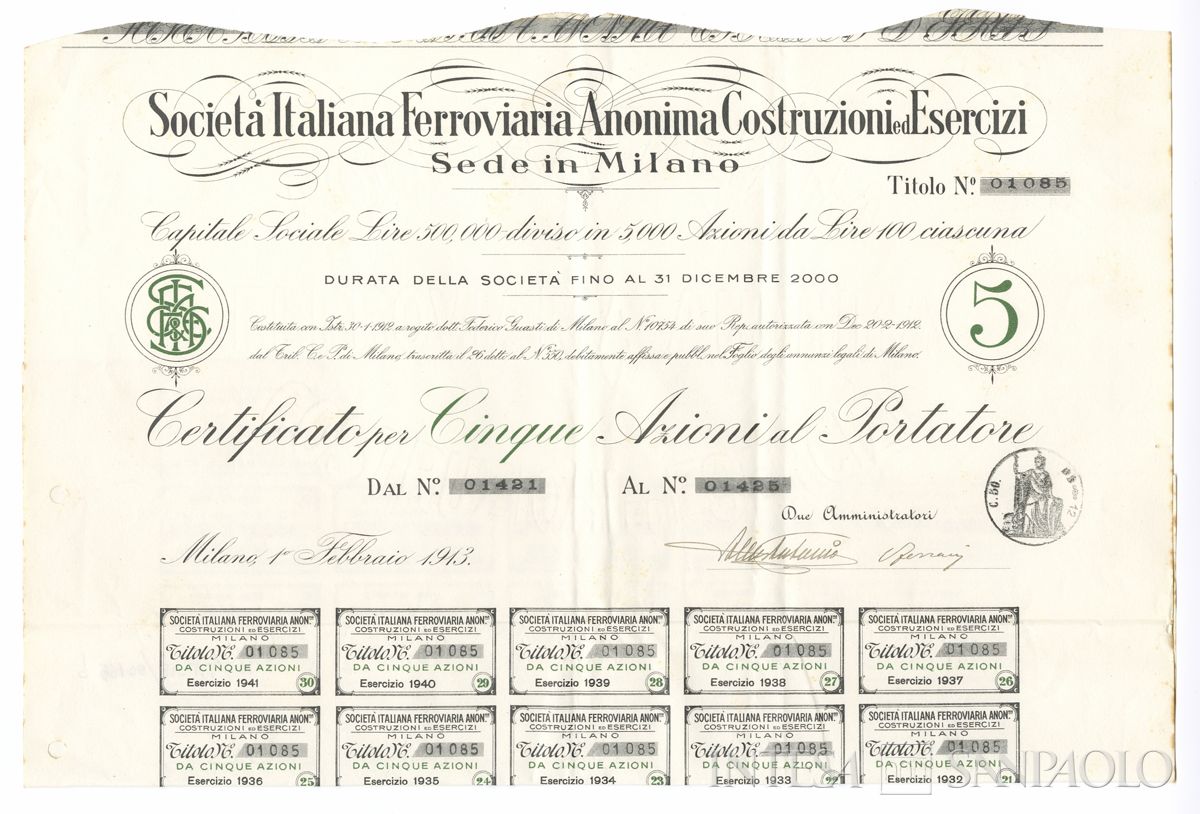 Società Italiana Ferroviaria Anonima Costruzioni ed Esercizi
Sede in Milano
Titolo No. 01085
Capitale Sociale Lire 500,000 diviso in 5,000 Azioni da Lire 100 ciascuna
DURATA DELLA SOCIETÀ FINO AL 31 DICEMBRE 2000
5
Costituita con Istr. 30-1-1912 a rogito dott. Federico Guasti di Milano al No. 10754 di suo Rep. autorizzata con Dec. 20-2-1912.
dal Trib. C. e P. di Milano, trascritta il 26 detto al No. 550, debitamente affissa e pubbl. nel Foglio degli annunzi legali di Milano.
Certificato per Cinque Azioni al Portatore
DAL No. 01421 AL No. 01425
C. 50.
12
Due Amministratori
Milano, 1° Febbraio 1913.
SOCIETÀ ITALIANA FERROVIARIA ANON.
COSTRUZIONI ED ESERCIZI
MILANO
Titolo No. 01085
DA CINQUE AZIONI
Esercizio 1941 30
SOCIETÀ ITALIANA FERROVIARIA ANON.
COSTRUZIONI ED ESERCIZI
MILANO
Titolo No. 01085
DA CINQUE AZIONI
Esercizio 1940 29
SOCIETÀ ITALIANA FERROVIARIA ANON.
COSTRUZIONI ED ESERCIZI
MILANO
Titolo No. 01085
DA CINQUE AZIONI
Esercizio 1939 28
SOCIETÀ ITALIANA FERROVIARIA ANON.
COSTRUZIONI ED ESERCIZI
MILANO
Titolo No. 01085
DA CINQUE AZIONI
Esercizio 1938 27
SOCIETÀ ITALIANA FERROVIARIA ANON.
COSTRUZIONI ED ESERCIZI
MILANO
Titolo No. 01085
DA CINQUE AZIONI
Esercizio 1937 26
SOCIETÀ ITALIANA FERROVIARIA ANON.
COSTRUZIONI ED ESERCIZI
MILANO
Titolo No. 01085
DA CINQUE AZIONI
Esercizio 1936 25
SOCIETÀ ITALIANA FERROVIARIA ANON.
COSTRUZIONI ED ESERCIZI
MILANO
Titolo No. 01085
DA CINQUE AZIONI
Esercizio 1935 24
SOCIETÀ ITALIANA FERROVIARIA ANON.
COSTRUZIONI ED ESERCIZI
MILANO
Titolo No. 01085
DA CINQUE AZIONI
Esercizio 1934 23
SOCIETÀ ITALIANA FERROVIARIA ANON.
COSTRUZIONI ED ESERCIZI
MILANO
Titolo No. 01085
DA CINQUE AZIONI
Esercizio 1933 22
SOCIETÀ ITALIANA FERROVIARIA ANON.
COSTRUZIONI ED ESERCIZI
MILANO
Titolo No. 01085
DA CINQUE AZIONI
Esercizio 1932 21
INTESA SANPAOLO